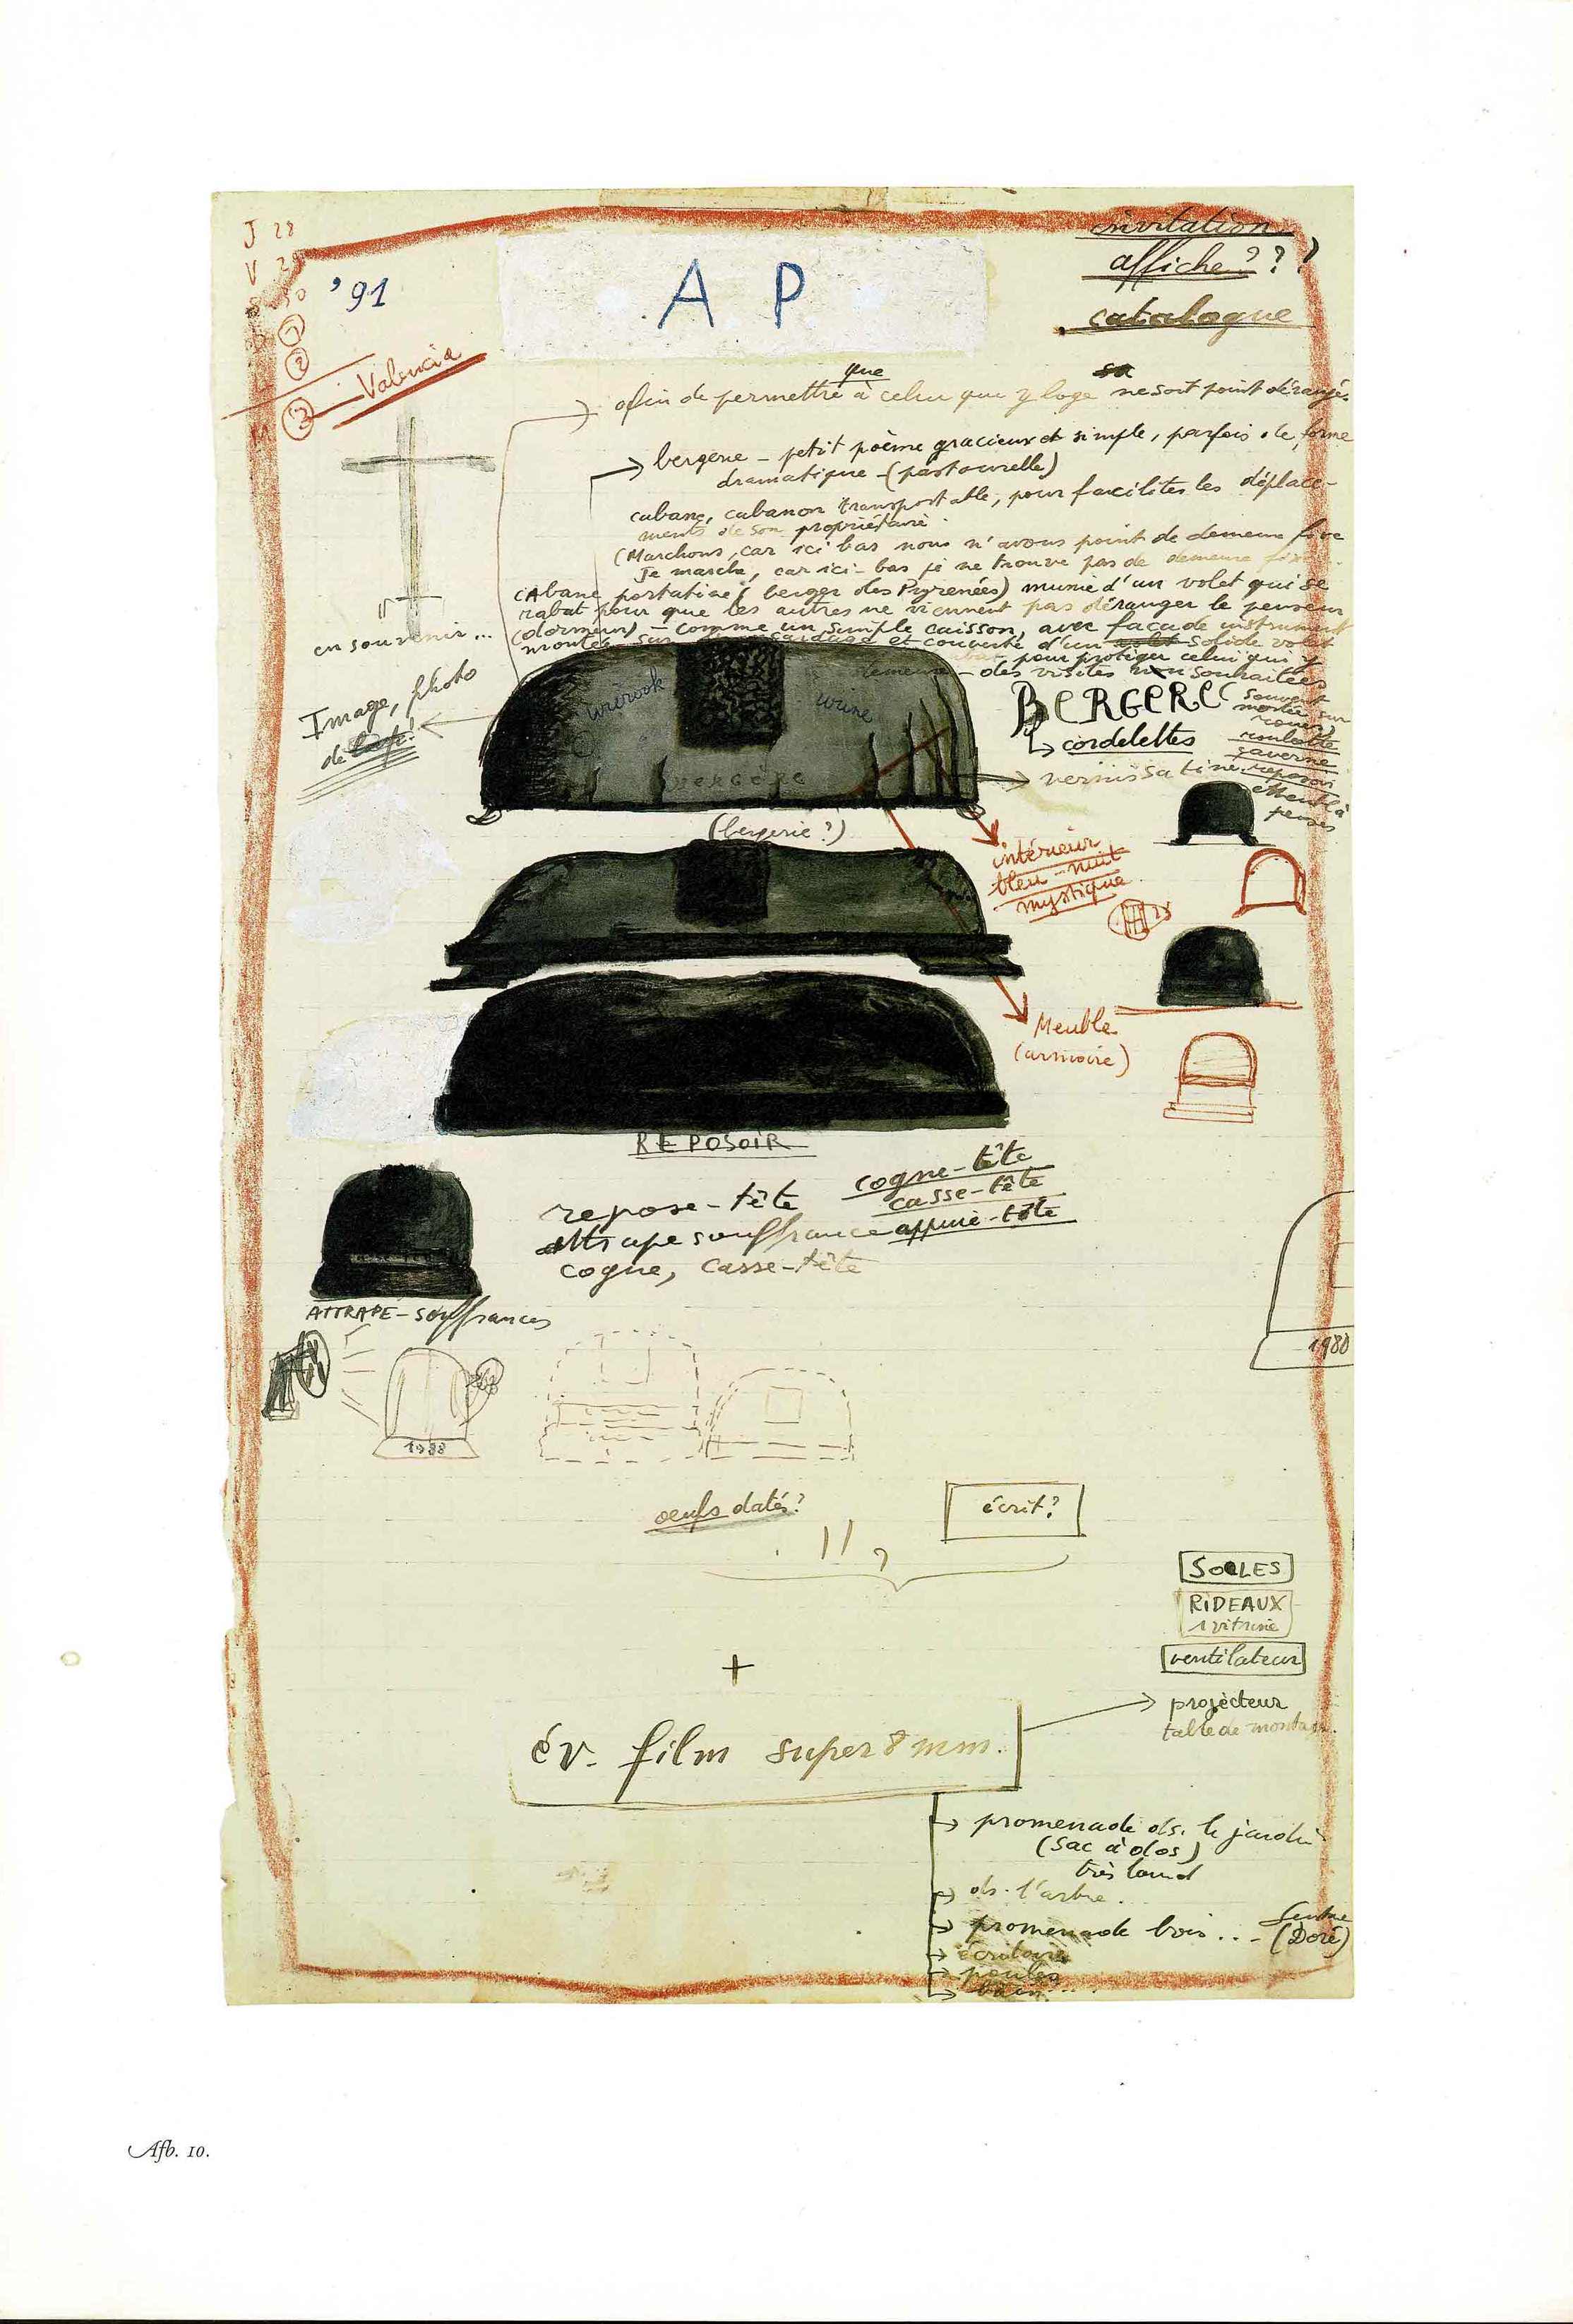 J 28
V 29
S 30
'91
A P
invitation
affiche ? ? ?
catalogue
Valencia
que
afin de permettre à celui que y loge ne soit point dérangé
bergerie - petit poème gracieux et simple, parfois de forme
dramatique - (pastourelle)
cabane, cabanon transportable, pour faciliter les déplace-
ments de son propriétaire.
(Marchons, car ici bas nous n'avons point de demeure fixe
Je marche, car ici-bas je ne trouve pas de demeure fixe.
cabane portative (berger des Pyrenées) munie d'un volet qui se
rabat pour que les autres ne viennent pas déranger le penseur
(dormeur) - comme un simple caisson, avec façade
montée sur et couverte d'un solide volet
pour protéger celui qui y
demeure - des visites non souhaitées
en souvenir...
Image, photo
de
wierook
urine
bergère
BERGERE
cordelettes
vernis satiné
souvent
montée sur
roues
roulotte
caverne
reposoir
Meuble à
penser
(bergerie?)
intérieur
bleu-nuit
mystique
Meuble
(armoire)
REPOSOIR
repose-tête
cogne-tête
casse-tête
attrape souffrance appuie-tête
cogne, casse-tête
ATTRAPE-souffrances
1988
1988
oeufs datés?
écrit?
SOCLES
RIDEAUX
1 vitrine
ventilateur
+
év. film super 8 mm.
projecteur
table de montage
promenade ds. le jardin
(sac à dos)
très lourd
ds. l'arbre.
promenade bois...
(Doré)
écritoire
poules
bain...
Afb. 10.